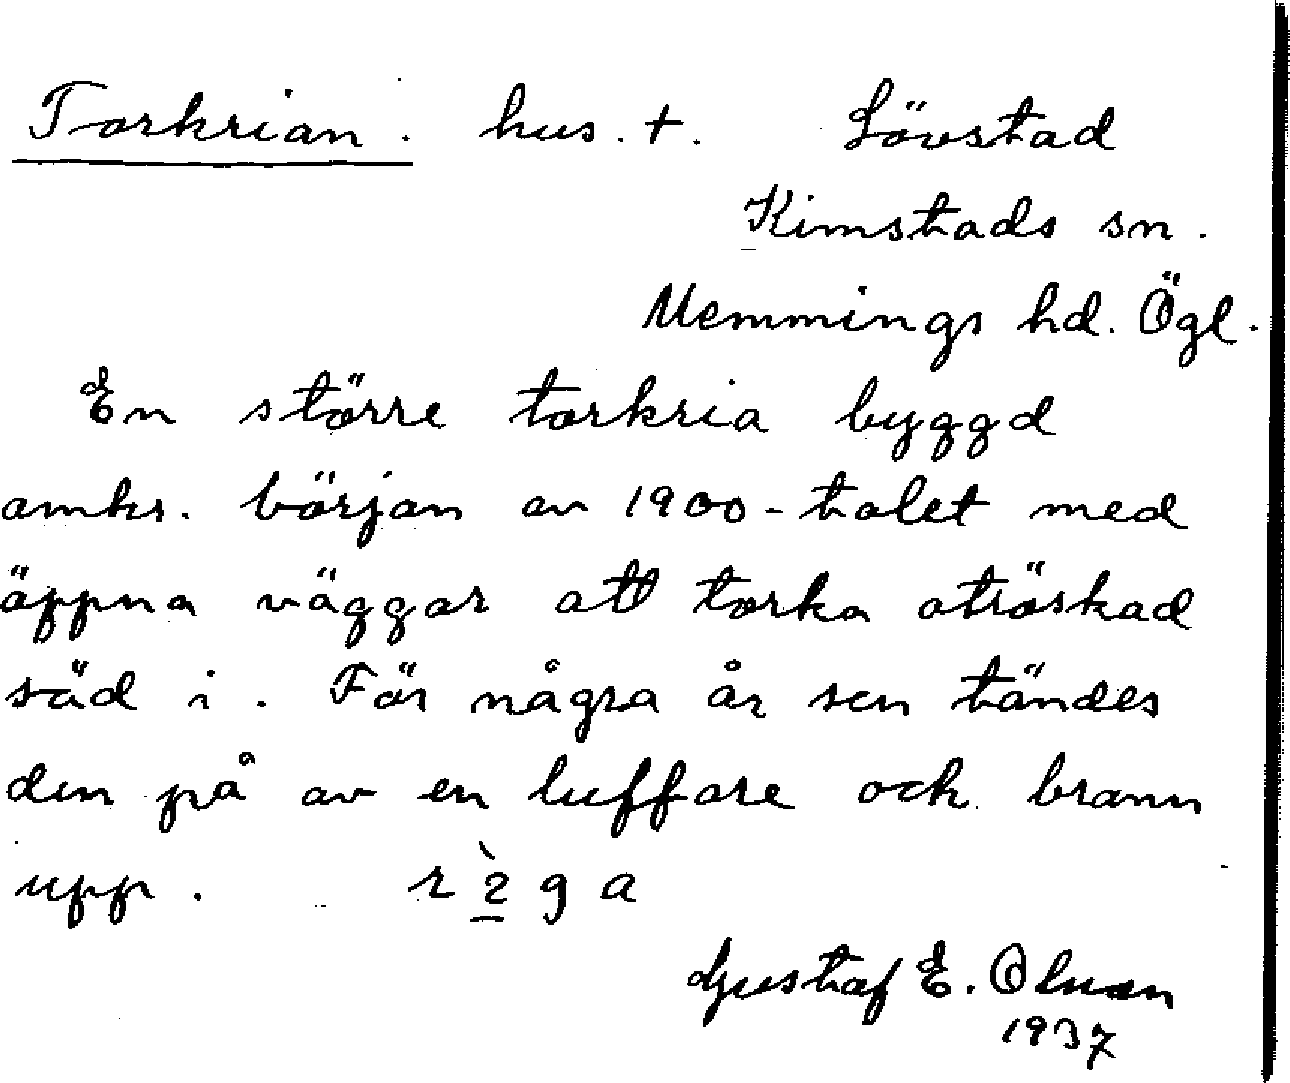 Torkrian. hus. †. Lövstad
Kimstads sn.
Memmings hd. Ögl.
En större torkria byggd
omkr. början av 1900-talet med
öppna väggar att torka otröskad
säd i. För några år sen tändes
den på av en luffare och brann
upp. r2̲̀ga
Gustaf E.
1937